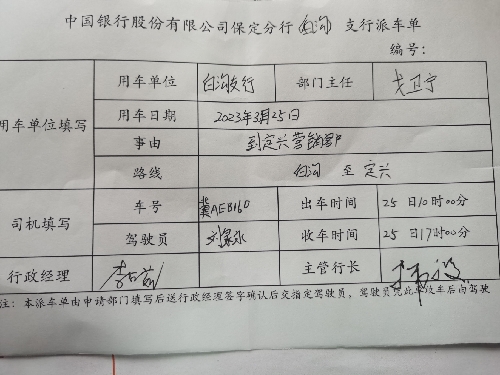 中国银行股份有限公司保定分行(白沟)支行派车单
编号:
用车单位填写 用车单位 白沟支行 部门主任
用车日期 2023年3月25日
事由 到定兴营销客户
路线 白沟 至 定兴
司机填写 车号 冀AEB160 出车时间 25日10时00分
驾驶员 收车时间 25日17时00分
行政经理 主管行长
注:本派车单由申请部门填写后送行政经理签字确认后交指定驾驶员,驾驶员凭此单收车后向驾驶